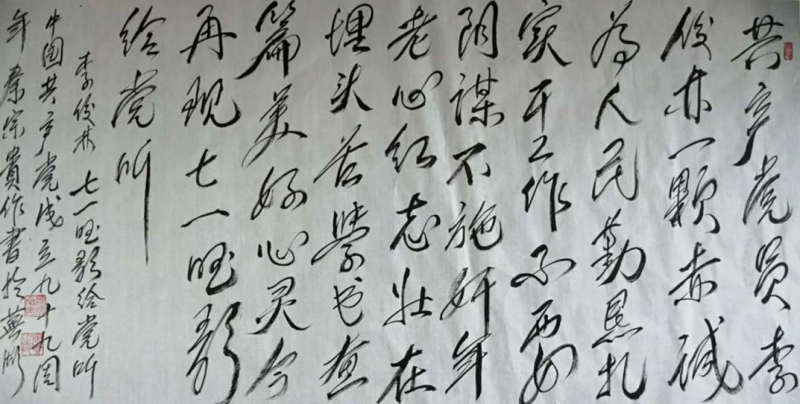 共产党员李
俊林一颗赤诚
为人民勤恳扎
实干工作不耍
阴谋不施奸年
老心红志壮在
埋头苦学书画
篇美好心灵今
再现七一唱歌
给党听
李俊林七一唱歌给党听
中国共产党成立九十九周
年秦宗贵作书于